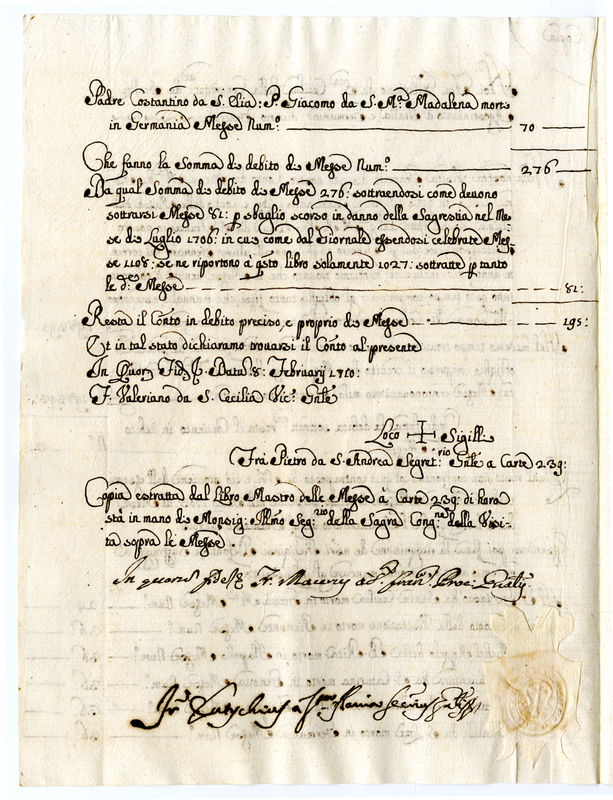 Padre Costantino da S. Elia: P. Giacomo da S. Mª. Madalena morto
in Germania Messe Num.º 70
Che fanno la Somma di debito di Messe Num.º 276
Da qual Somma di debito di Messe 276: sottraendosi come devono
sottrarsi Messe 81: p sbaglio scorso in danno della Sagrestia nel Me=
se di Luglio 1706: in cui come dal Giornale essendosi celebrate Mes=
se 1108: se ne riportono à qsto libro solamente 1027: sottratte p tanto
le de. Messe 81:
Resta il Conto in debito preciso, e proprio di Messe 195:
Et in tal stato dichiaramo trovarsi il Conto al presente
In Quor. Fid. Datu. 8: February 1710:
F. Valeriano da S. Cecilia Vic: Gnle
Loco + Sigilli
Frà Pietro da S. Andrea Segret:rio Gnle a Carte 239:
Copia estratta dal Libro Mastro delle Messe a Carte 239: di Kara
stà in mano di Monsig: Illmo Seg:rio della Sagra Cong:ne della Visi-
ta sopra le Messe
In quarum fidem Fr.
Fr.